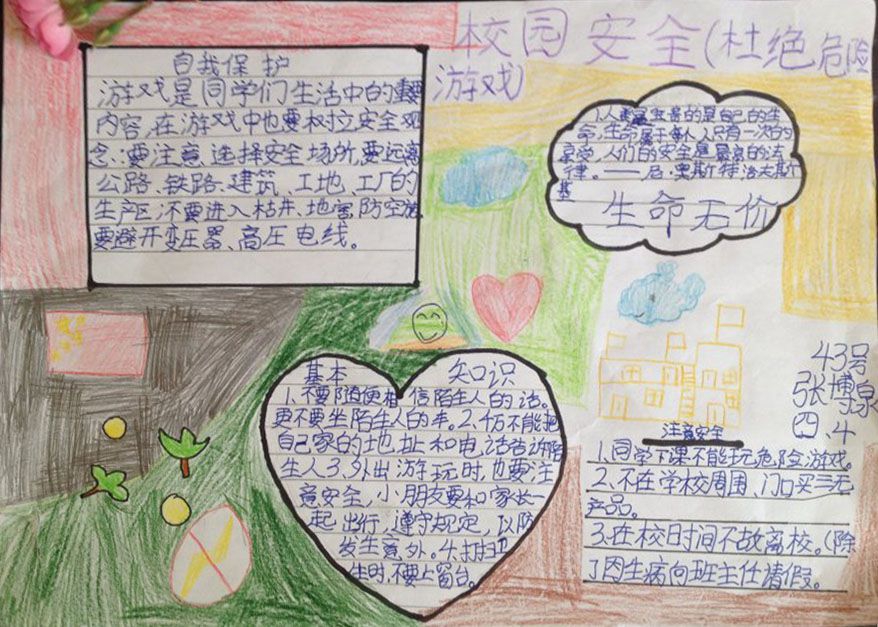 校园安全(杜绝危险
游戏)
自我保护
游戏是同学们生活中的重要
内容,在游戏中也要树立安全观
念:要注意选择安全场所,要远离
公路、铁路、建筑、工地、工厂的
生产区;不要进入枯井、地窖、防空施,
要避开变压器、高压电线。
1.人最宝贵的是自己的生
命,生命属于每人只有一次的
享受,人们的安全是最高的法
律。——尼·奥斯特洛夫斯
基
生命无价
基本 知识
1.不要随便相信陌生人的话。
更不要坐陌生人的车。2.千万不能把
自己家的地址和电话告诉陌
生人3.外出游玩时,也要注
意安全,小朋友要和家长一
起出行,遵守规定,以防
发生意外。4.打扫卫
生时,不要上窗台。
43号
张博泉
四、4
注意安全
1.同学下课不能玩危险游戏。
2.不在学校周围、门口买三无
产品。
3.在校日时间不故离校。(除
了因生病向班主任请假。